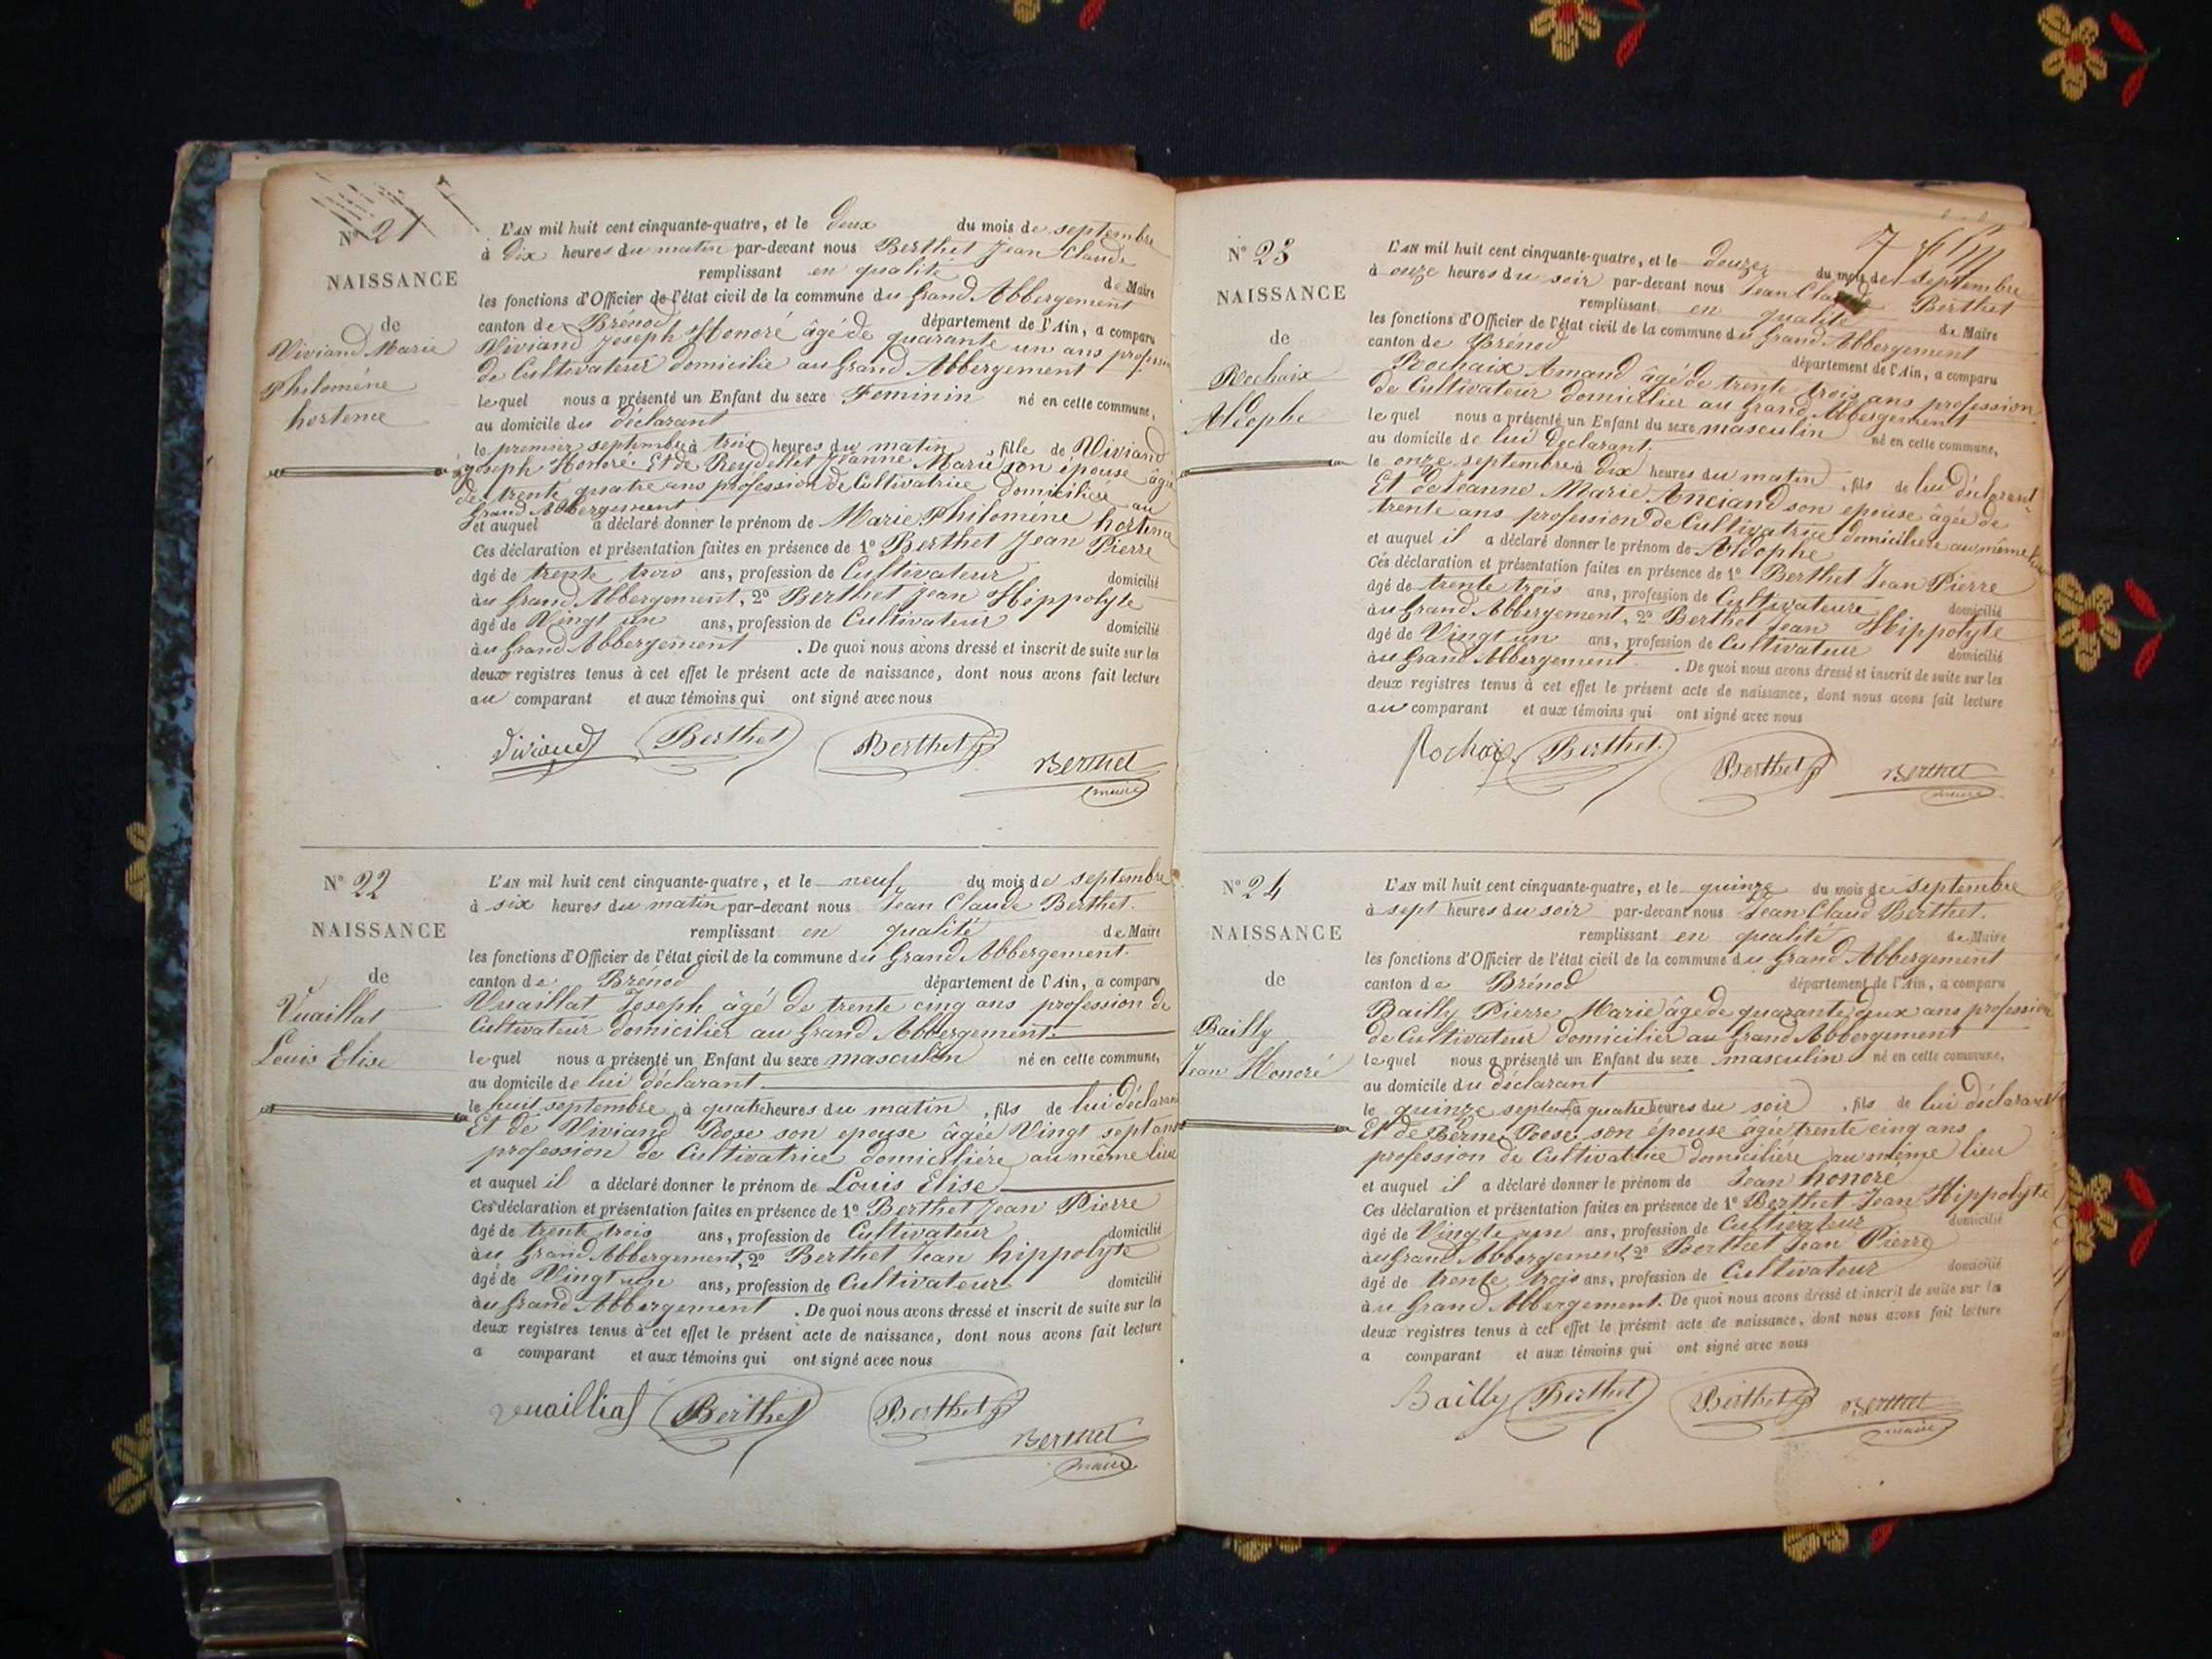 N° 21
NAISSANCE
de
Viviand Marie
Philoméne
hortense
L'AN mil huit cent cinquante-quatre, et le deux du mois de septembre
à dix heures du matin par-devant nous Berthet Jean Claude
remplissant en qualité de Maire
les fonctions d'Officier de l'état civil de la commune du Grand Abbergement
canton de Brénod département de l'Ain, a comparu
Viviand Joseph Honoré âgé de quarante un ans profession
de Cultivateur domicilié au Grand Abbergement
lequel nous a présenté un Enfant du sexe Feminin né en cette commune,
au domicile du déclarant
le premier septembre à trois heures du matin, fille de Viviand
Joseph Honoré. Et de Reydellet Jeanne Marie son épouse âgée
de trente quatre ans profession de Cultivatrice domiciliée au
Grand Abbergement
et auquel a déclaré donner le prénom de Marie Philoméne hortense
Ces déclaration et présentation faites en présence de 1° Berthet Jean Pierre
âgé de trente trois ans, profession de Cultivateur domicilié
au Grand Abbergement, 2° Berthet Jean Hippolyte
âgé de Vingt un ans, profession de Cultivateur domicilié
au Grand Abbergement. De quoi nous avons dressé et inscrit de suite sur les
deux registres tenus à cet effet le présent acte de naissance, dont nous avons fait lecture
au comparant et aux témoins qui ont signé avec nous
Viviand Berthet Berthet Berthet
maire
N° 22
NAISSANCE
de
Vuaillat
Louis Elise
L'AN mil huit cent cinquante-quatre, et le neuf du mois de septembre
à six heures du matin par-devant nous Jean Claude Berthet.
remplissant en qualité de Maire
les fonctions d'Officier de l'état civil de la commune du Grand Abbergement.
canton de Brénod département de l'Ain, a comparu
Vuaillat Joseph âgé de trente cinq ans profession de
Cultivateur domicilier au Grand Abbergement.
lequel nous a présenté un Enfant du sexe masculin né en cette commune,
au domicile de lui déclarant
le huit septembre à quatre heures du matin, fils de lui déclarant
Et de Viviand Rose son epouse âgée Vingt sept ans
profession de Cultivatrice domicilière au même lieu
et auquel il a déclaré donner le prénom de Louis Elise
Ces déclaration et présentation faites en présence de 1° Berthet Jean Pierre
âgé de trente trois ans, profession de Cultivateur domicilié
au Grand Abbergement, 2° Berthet Jean hippolyte
âgé de Vingt un ans, profession de Cultivateur domicilié
au Grand Abbergement. De quoi nous avons dressé et inscrit de suite sur les
deux registres tenus à cet effet le présent acte de naissance, dont nous avons fait lecture
a comparant et aux témoins qui ont signé avec nous
Vuailliat Berthet Berthet Berthet
maire
N° 23
NAISSANCE
de
Rochaix
Aldophe
L'AN mil huit cent cinquante-quatre, et le douze du mois de septembre
à onze heures du soir par-devant nous Jean Claude Berthet
remplissant en qualité de Maire
les fonctions d'Officier de l'état civil de la commune du Grand Abbergement
canton de Brénod département de l'Ain, a comparu
Rochaix Amand âgé de trente trois ans profession
de Cultivateur domicilier au Grand Abbergement
lequel nous a présenté un Enfant du sexe masculin né en cette commune,
au domicile de lui declarant.
le onze septembre à dix heures du matin, fils de lui déclarant
Et de Jeanne Marie Anciand son epouse âgée de
trente ans profession de Cultivatrice domicilière au même lieu
et auquel il a déclaré donner le prénom de Aldophe
Ces déclaration et présentation faites en présence de 1° Berthet Jean Pierre
âgé de trente trois ans, profession de Cultivateure domicilié
au Grand Abbergement, 2° Berthet Jean Hippolyte
âgé de Vingt un ans, profession de Cultivateur domicilié
au Grand Abbergement. De quoi nous avons dressé et inscrit de suite sur les
deux registres tenus à cet effet le présent acte de naissance, dont nous avons fait lecture
au comparant et aux témoins qui ont signé avec nous
Rochaix Berthet Berthet Berthet
maire
N° 24
NAISSANCE
de
Bailly
Jean Honoré
L'AN mil huit cent cinquante-quatre, et le quinze du mois de septembre
à sept heures du soir par-devant nous Jean Claud Berthet.
remplissant en qualité de Maire
les fonctions d'Officier de l'état civil de la commune du Grand Abbergement
canton de Brénod département de l'Ain, a comparu
Bailly Pierre Marie âgé de quarante deux ans profession
de Cultivateur domicilier au Grand Abbergement
lequel nous a présenté un Enfant du sexe masculin né en cette commune,
au domicile du déclarant
le quinze septembre à quatre heures du soir, fils de lui déclarant
Et de Berne Rose son épouse âgée trente cinq ans
profession de Cultivatrice domicilière au même lieu
et auquel il a déclaré donner le prénom de Jean honoré
Ces déclaration et présentation faites en présence de 1° Berthet Jean Hippolyte
âgé de Vingte un ans, profession de Cultivateur domicilié
au Grand Abbergement, 2° Berthet Jean Pierre
âgé de trente trois ans, profession de Cultivateur domicilié
au Grand Abbergement. De quoi nous avons dressé et inscrit de suite sur les
deux registres tenus à cet effet le présent acte de naissance, dont nous avons fait lecture
a comparant et aux témoins qui ont signé avec nous
Bailly Berthet Berthet Berthet
maire